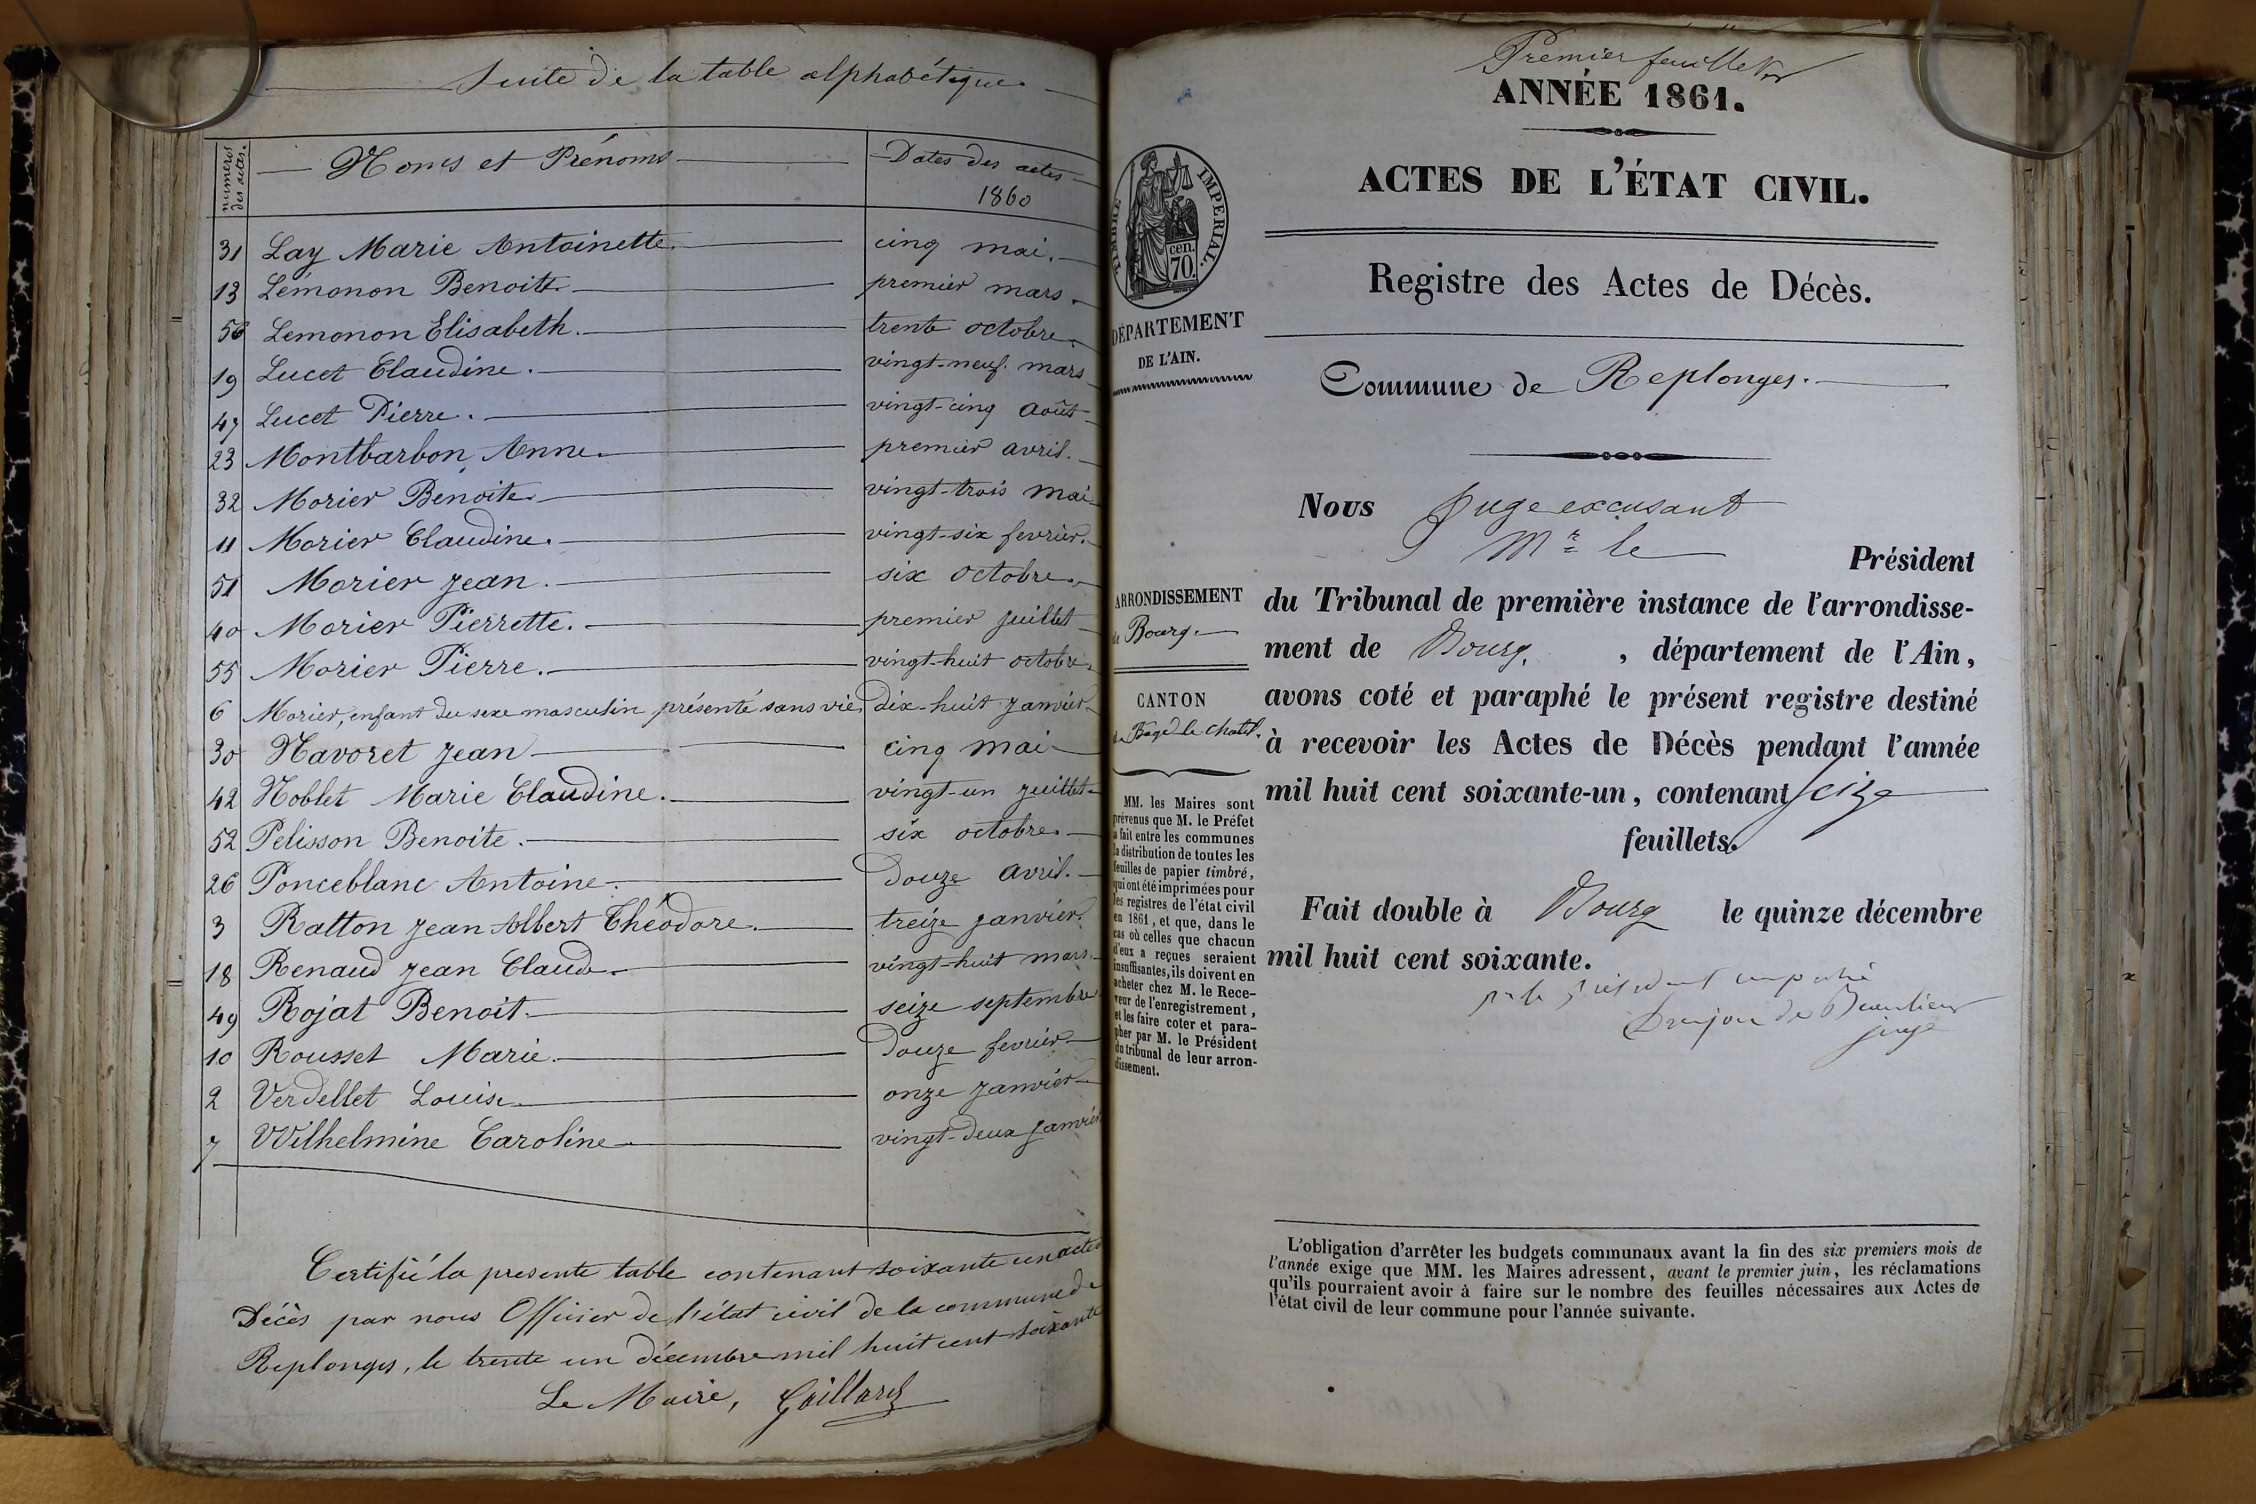 Suite de la table alphabétique.
numéros des actes. Noms et Prénoms Dates des actes 1860
31 Lay Marie Antoinette. cinq mai.
13 Lémonon Benoite. premier mars.
56 Lemonon Elisabeth. trente octobre.
19 Lucet Claudine. vingt-neuf mars
47 Lucet Pierre. vingt-cinq août
23 Montbarbon Anne. premier avril.
32 Morier Benoite. vingt-trois mai
11 Morier Claudine. vingt-six fevrier.
51 Morier Jean. six octobre.
40 Morier Pierrette. premier juillet
55 Morier Pierre. vingt-huit octobre.
6 Morier, enfant du sexe masculin présenté sans vie, dix-huit janvier
30 Navoret Jean cinq mai
42 Noblet Marie Claudine. vingt-un juillet
52 Pelisson Benoite. six octobre.
26 Ponceblanc Antoine. douze avril.
3 Ratton Jean Albert Théodore. treize janvier.
18 Renaud Jean Claude. vingt-huit mars.
49 Rojat Benoit. seize septembre
10 Rousset Marie. douze fevrier
2 Verdellet Louise. onze janvier
7 Wilhelmine Caroline vingt-deux janvier
Certifié la presente table contenant soixante un actes
Décès par nous Officier de l'état civil de la commune de
Replonges, le trente un décembre mil huit cent soixante
Le Maire, Gaillard
Premier feuillet
ANNÉE 1861.
ACTES DE L'ÉTAT CIVIL.
TIMBRE IMPÉRIAL.
cen.
70.
Registre des Actes de Décès.
DÉPARTEMENT
DE L'AIN.
Commune de Replonges.
Nous Juge excusant
Mr le Président
ARRONDISSEMENT
de Bourg.
du Tribunal de première instance de l'arrondisse-
ment de Bourg, département de l'Ain,
avons coté et paraphé le présent registre destiné
à recevoir les Actes de Décès pendant l'année
mil huit cent soixante-un, contenant seize
feuillets.
CANTON
de Bagé-le-Chatel.
MM. les Maires sont
prévenus que M. le Préfet
a fait entre les communes
la distribution de toutes les
feuilles de papier timbré,
qui ont été imprimées pour
les registres de l'état civil
en 1861, et que, dans le
cas où celles que chacun
d'eux a reçues seraient
insuffisantes, ils doivent en
acheter chez M. le Rece-
veur de l'enregistrement,
et les faire coter et para-
pher par M. le Président
du tribunal de leur arron-
dissement.
Fait double à Bourg le quinze décembre
mil huit cent soixante.
pr le président empêché
de Beaulieu
juge
L'obligation d'arrêter les budgets communaux avant la fin des six premiers mois de
l'année exige que MM. les Maires adressent, avant le premier juin, les réclamations
qu'ils pourraient avoir à faire sur le nombre des feuilles nécessaires aux Actes de
l'état civil de leur commune pour l'année suivante.